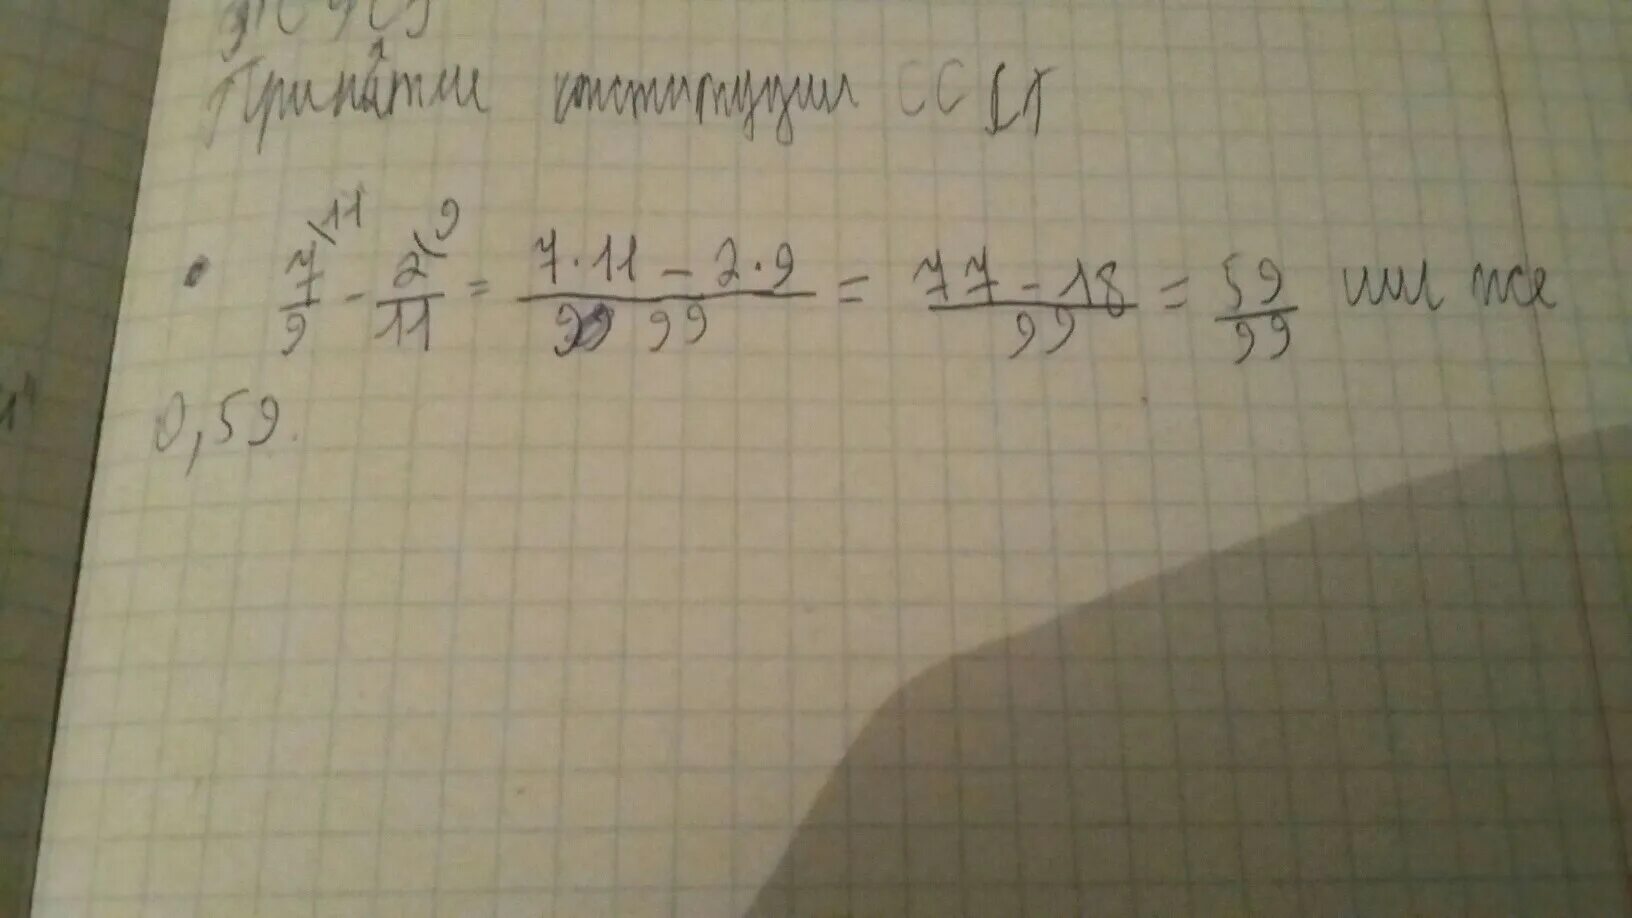 Принятии конституции СС
7\11/9 - 2\9/11 = 7·11 - 2·9/99 = 77 - 18/99 = 59/99 или же
0,59.